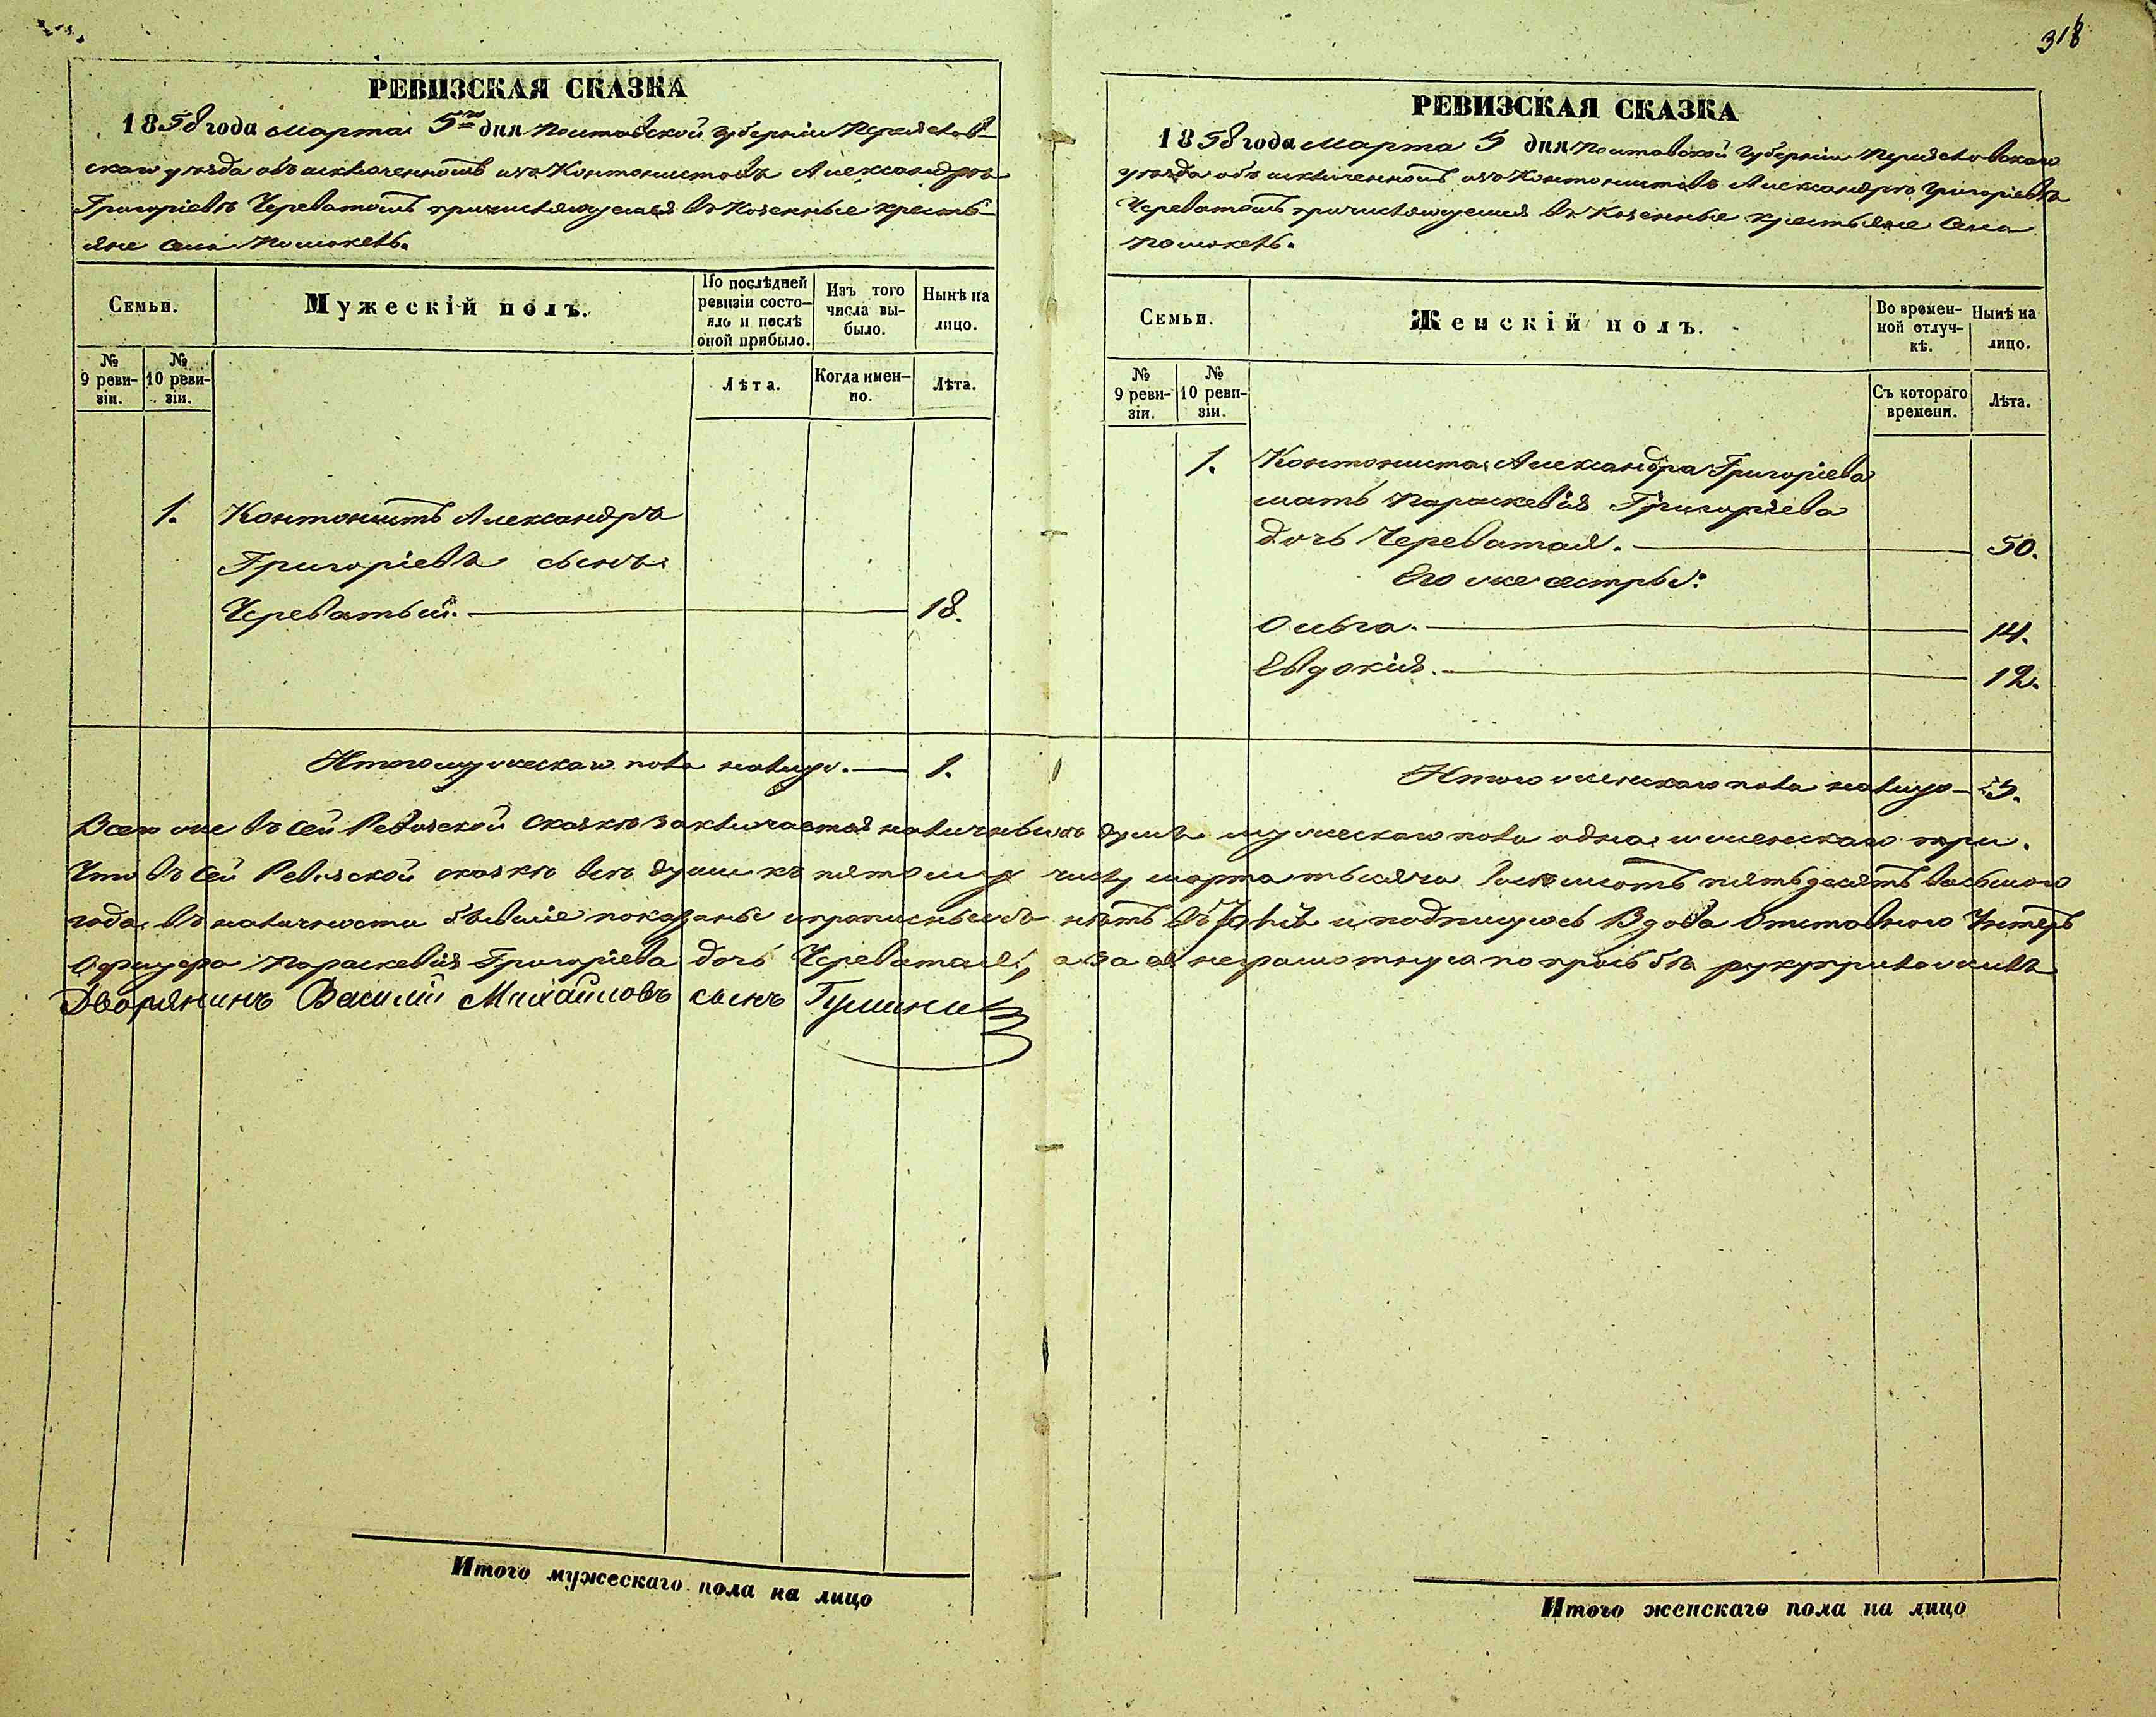 318
РЕВИЗСКАЯ СКАЗКА
1858 года Марта 5го дня Полтавской губерніи Переяслов-
скаго уѣзда объ исключенномъ изъ Кантонистовъ Александрѣ
Григоріевѣ Череватомъ причисляющемся въ Казенные кресть-
яне села Помоклъ.
Семьи.
Мужескій полъ.
По послѣдней ревизіи состо-яло и послѣ оной прибыло.
Изъ того числа вы-было.
Нынѣ на лицо.
№ 9 реви-зіи.
№ 10 реви-зіи.
Лѣта.
Когда имен-но.
Лѣта.
1. Кантонистъ Александръ
Григоріевъ сынъ
Череватый. 18.
Итого мужескаго пола налицо. 1.
РЕВИЗСКАЯ СКАЗКА
1858 года Марта 5 дня Полтавской Губерніи Переясловскаго
уѣзда объ исключенномъ изъ Кантонистовъ Александрѣ Григоріевѣ
Череватомъ причисляющемся въ Казенные крестьяне села
Помоклъ.
Семьи.
Женскій полъ.
Во времен-ной отлуч-кѣ.
Нынѣ на лицо.
№ 9 реви-зіи.
№ 10 реви-зіи.
Съ котораго времени.
Лѣта.
1. Кантониста Александра Григоріева
мать Параскевія Григоріева
дочь Череватая. 50.
Его же сестры:
Ольга. 14.
Евдокія. 12.
Итого женскаго пола налицо 3.
Всего же въ сей Ревизской сказкѣ заключается наличныхъ душъ мужескаго пола одна и женскаго три.
Что въ сей Ревизской сказкѣ всѣ души къ пятому числу марта тысяча восемьсотъ пятьдесятъ восьмого
года въ наличности бывшіе показаны и прописныхъ нѣтъ въ и подпишусь Вдова Отставного Унтеръ
Офицера Параскевія Григоріева дочь Череватая, а за ея неграмотную по просьбѣ рукуприложилъ
Дворянинъ Василій Михайловъ сынъ
Итого мужескаго пола на лицо
Итого женскаго пола на лицо